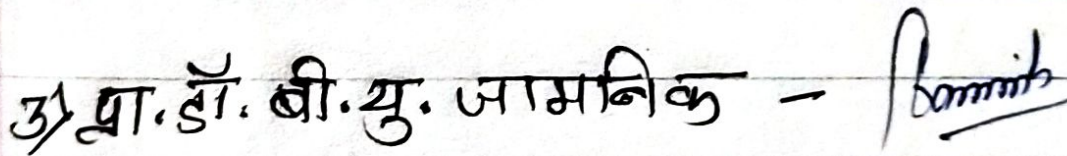 3) प्रा. डॉ. बी. यु. जामनिक -